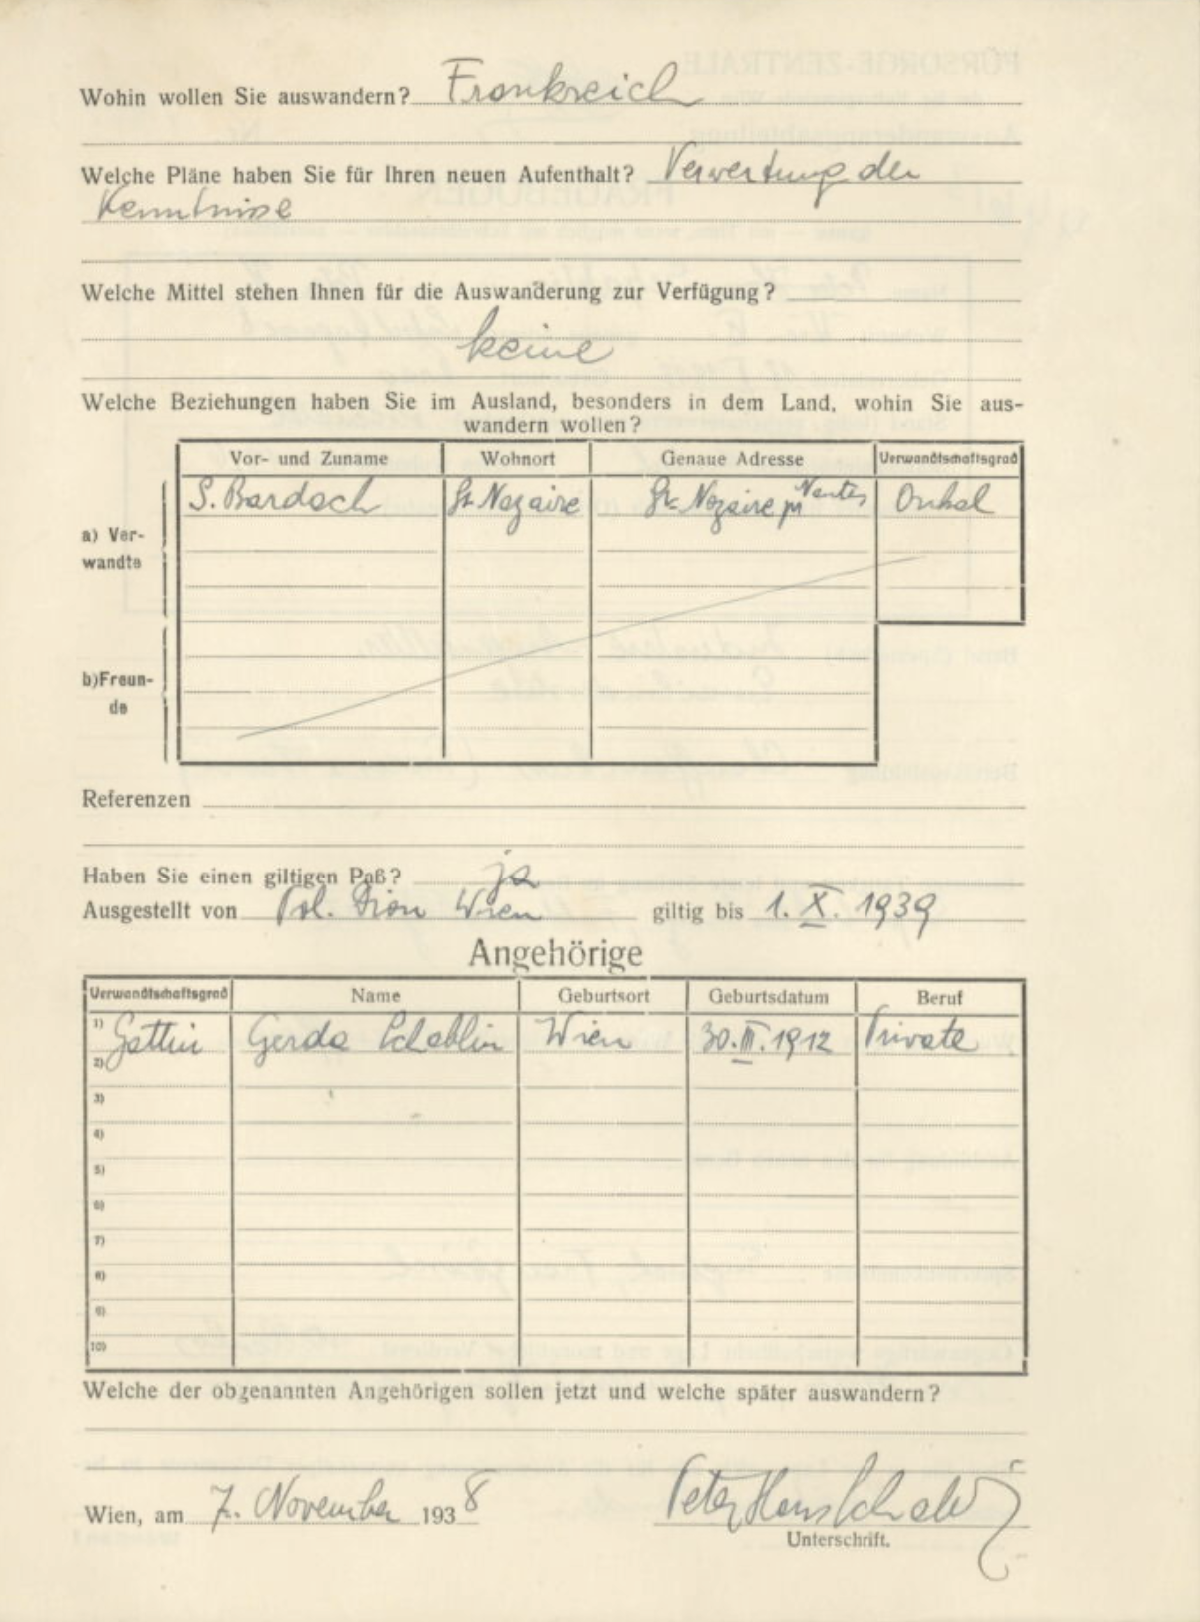 Wohin wollen Sie auswandern? Frankreich
Welche Pläne haben Sie für Ihren neuen Aufenthalt? Verwertung der
Kenntnisse
Welche Mittel stehen Ihnen für die Auswanderung zur Verfügung?
keine
Welche Beziehungen haben Sie im Ausland, besonders in dem Land, wohin Sie aus-
wandern wollen?
Vor- und Zuname Wohnort Genaue Adresse Verwandtschaftsgrad
S. Bardach St. Nazaire St. Nazaire pr Nantes Onkel
a) Ver-
wandte
b) Freun-
de
Referenzen
Haben Sie einen giltigen Paß? ja
Ausgestellt von Pol. Dion Wien giltig bis 1. X. 1939
Angehörige
Verwandtschaftsgrad Name Geburtsort Geburtsdatum Beruf
1) Gattin Gerda Schablin Wien 30. III. 1912 Private
2)
3)
4)
5)
6)
7)
8)
9)
10)
Welche der obgenannten Angehörigen sollen jetzt und welche später auswandern?
Wien, am 7. November 1938 Peter Hans Schablin
Unterschrift.